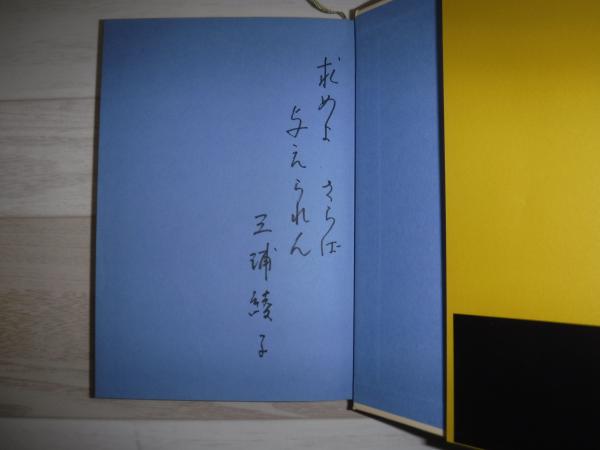 求めよ さらば
与えられん
三浦綾子